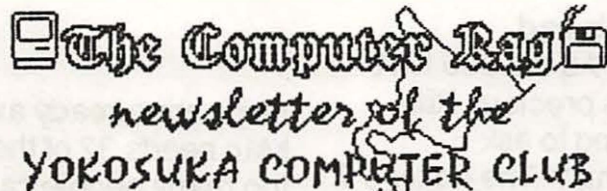 The Computer Rag
newsletter of the
YOKOSUKA COMPUTER CLUB